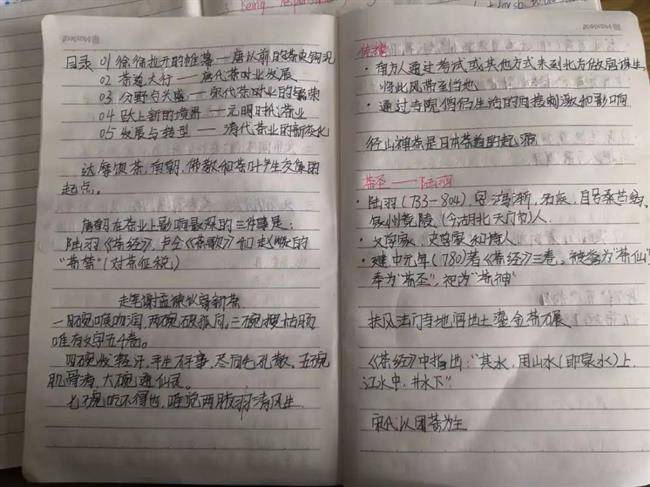 Being respons
目录 01 徐徐拉开的帷幕——唐以前的茶史钩沉
02 茶道大行——唐代茶叶业发展
03 分野与大盛——宋代茶叶业的繁荣
04 跃上新的境界——元明时代茶业
05 发展与转型——清代茶业的新变化
达摩饮茶, 南朝, 佛教和茶叶产生交集的
起点。
唐朝在茶业上影响最深的三件事是:
陆羽《茶经》, 卢仝《茶歌》和赵赞的
"茶禁"(对茶征税)
走笔谢孟谏议寄新茶
一碗喉吻润, 两碗破孤闷, 三碗搜枯肠
唯有文字五千卷。
四碗发轻汗, 平生不平事, 尽向毛孔散, 五碗
肌骨清, 六碗通仙灵。
七碗吃不得也, 唯觉两腋习习清风生
传播
· 南方人通过考试或其他方式来到北方做官谋生,
将此风带至当地
· 通过寺院僧侣生活的直接刺激和影响
径山禅茶是日本茶道的起源
茶圣——陆羽
· 陆羽(733-804), 字鸿渐, 自号桑苎翁,
复州竟陵(今湖北天门市)人
· 文学家、史学家和诗人
· 建中元年(780)著《茶经》三卷, 被誉为"茶仙"
奉为"茶圣", 祀为"茶神"
扶风法门寺地宫出土鎏金茶碾
《茶经》中指出:"其水, 用山水(即泉水)上,
江水中, 井水下"
宋代以团茶为主